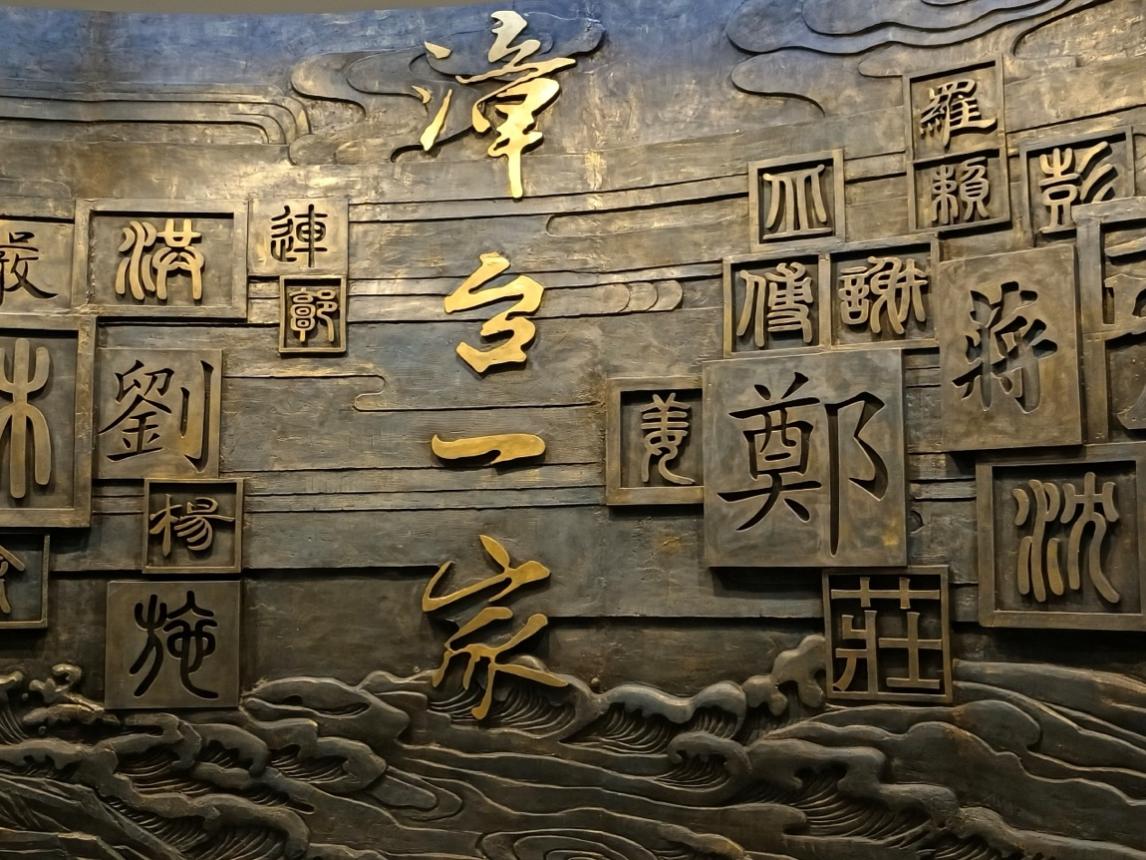 漳台一家
洪
連
郭
劉
林
楊
施
嚴
羅
賴
彭
傅
謝
蔣
姜
鄭
沈
莊